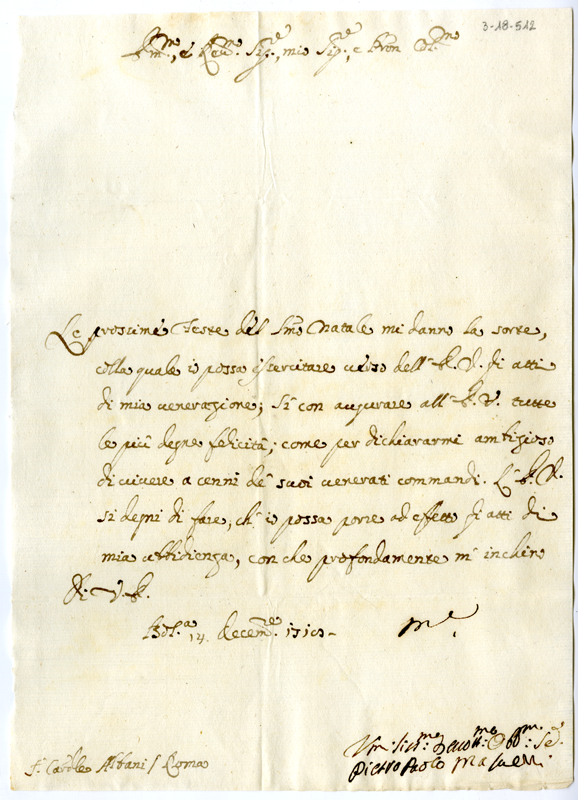 3-18-512
Em.mo, e Re.mo Sig.re, mio Sig.re, e Pron Col.mo
Le prossime Feste del S.mo Natale mi danno la sorte,
colla quale io possa essercitare verso dell' E. V. gli atti
di mia venerazione; sì con augurare all' E. V. tutte
le più degne felicità; come per dichiararmi ambizioso
di vivere a cenni de' suoi venerati commandi. L' E. V.
si degni di fare, ch' io possa porre ad effetto gli atti di
mia ubbidienza, con che profondamente m' inchino
Di V. E.
Bol.a 14. decem.re
Um. Devot.mo Obb.mo Se.
Pietro Paolo
S. Card.le Albani / Roma